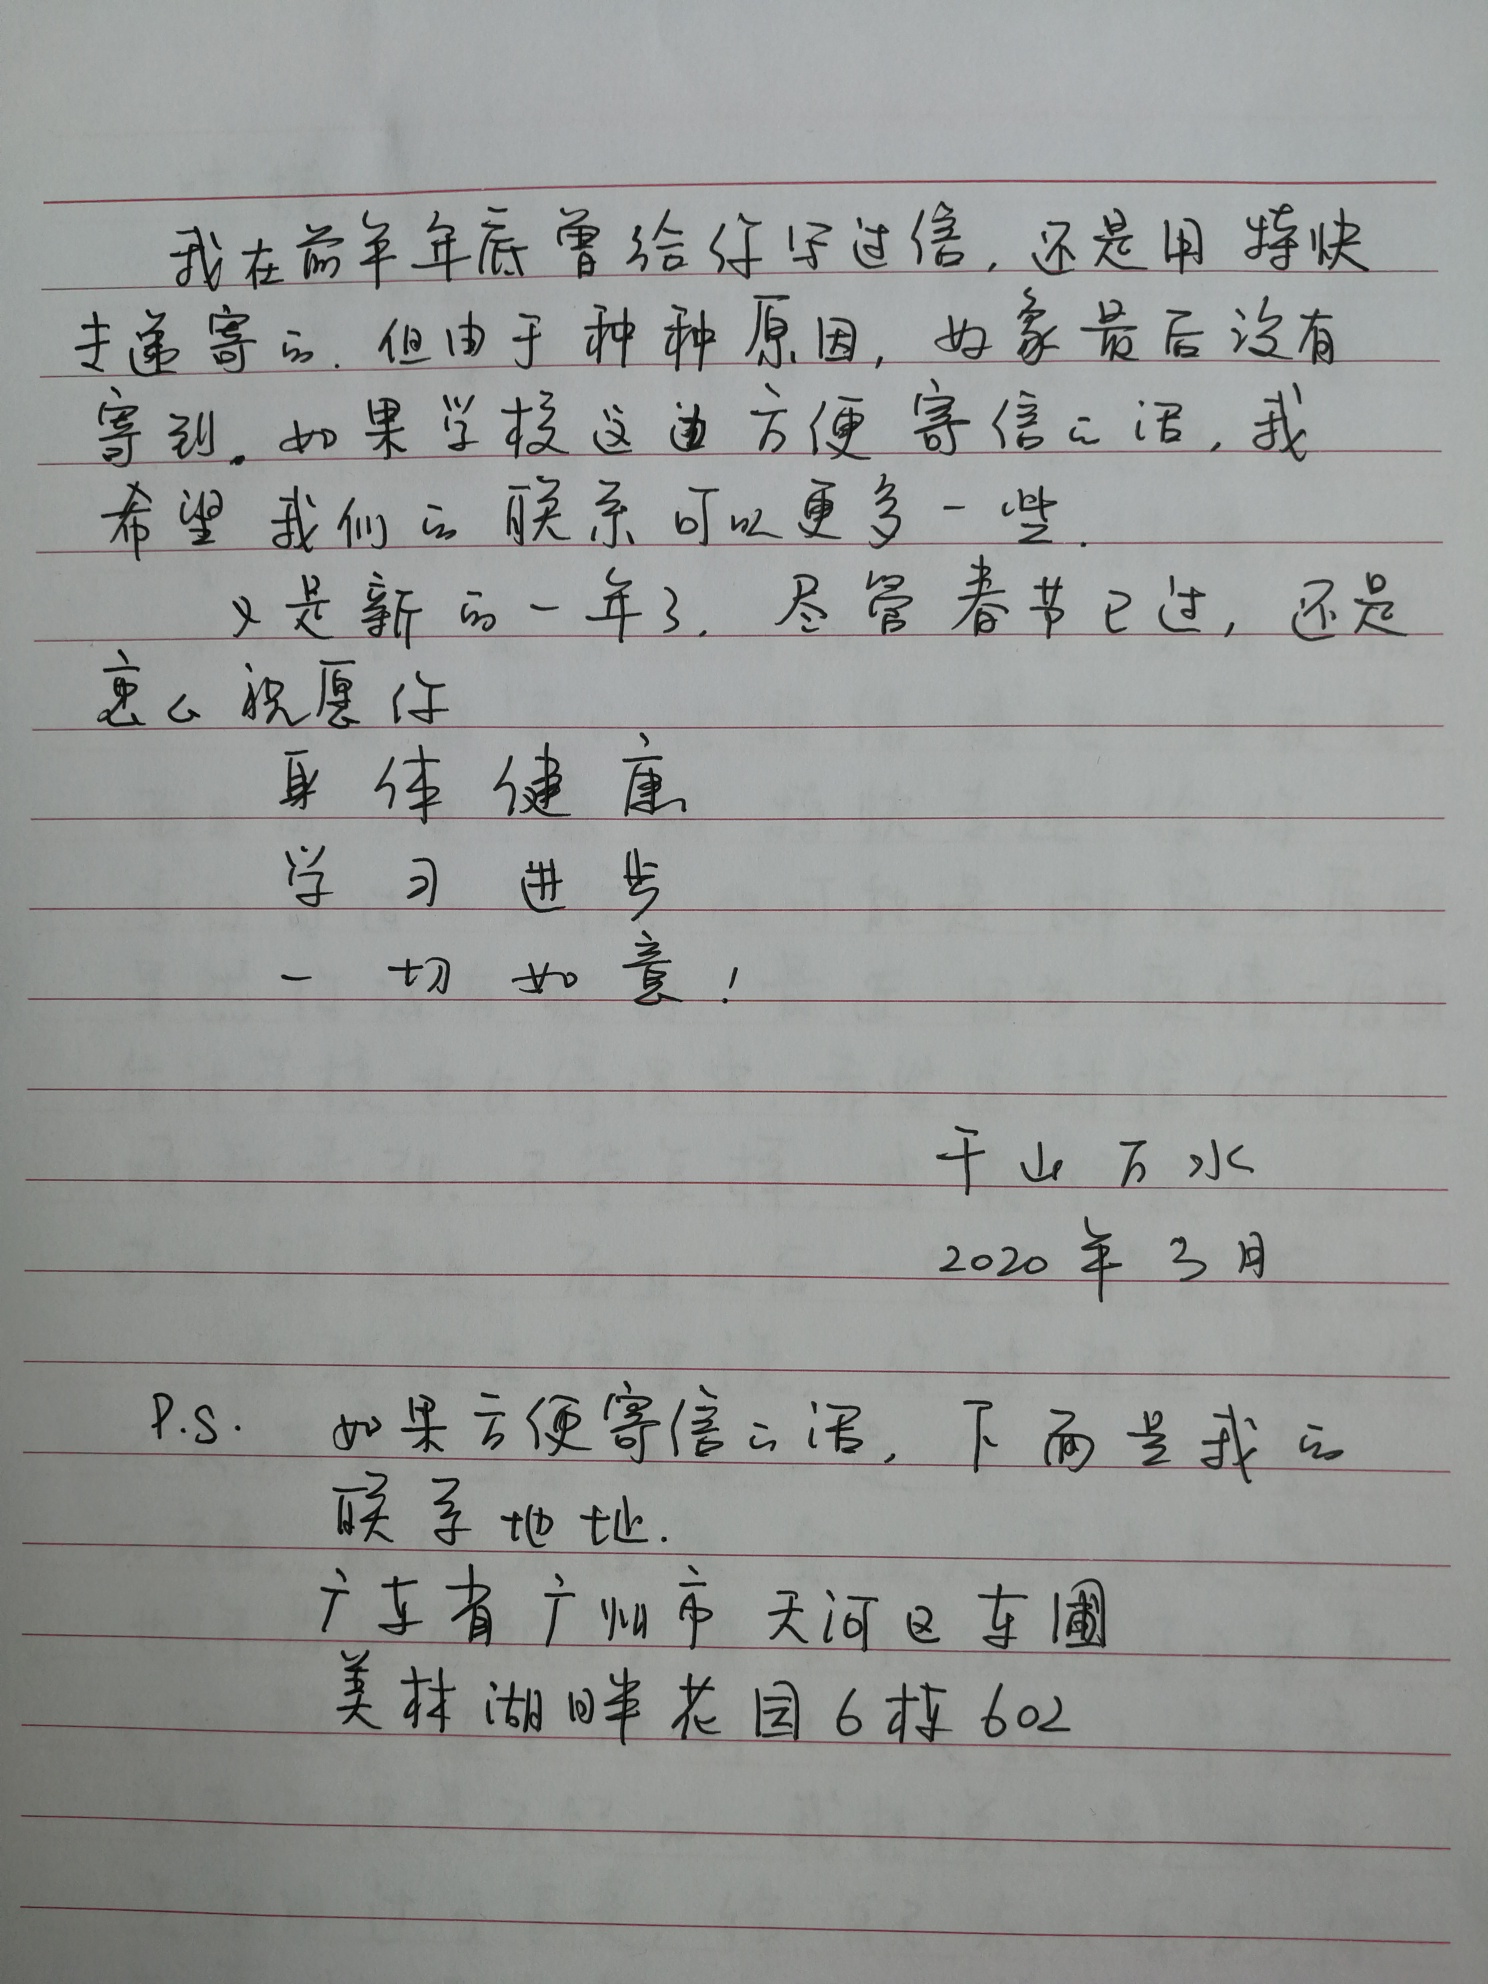 我在前年年底曾给你写过信，还是用特快
专递寄的．但由于种种原因，好象最后没有
寄到。如果学校这边方便寄信的话，我
希望我们的联系可以更多一些．
又是新的一年了．尽管春节已过，还是
衷心祝愿你
身体健康
学习进步
一切如意！
千山万水
2020年3月
P.S. 如果方便寄信的话，下面是我的
联系地址．
广东省广州市天河区车圃
美林湖畔花园6栋602